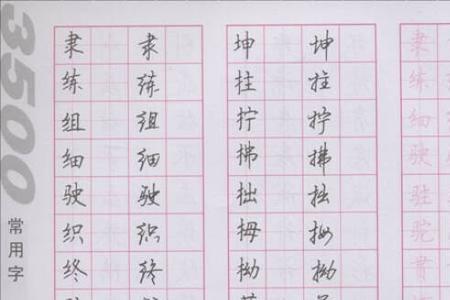 3500
常用字
隶 隶 坤 坤 隶
练 练 拄 拄 练
组 组 拧 拧 细
细 细 拂 拂 驶
驶 驶 拙 拙 驻
织 织 拇 拇 驼
终 终 拗 拗 贯